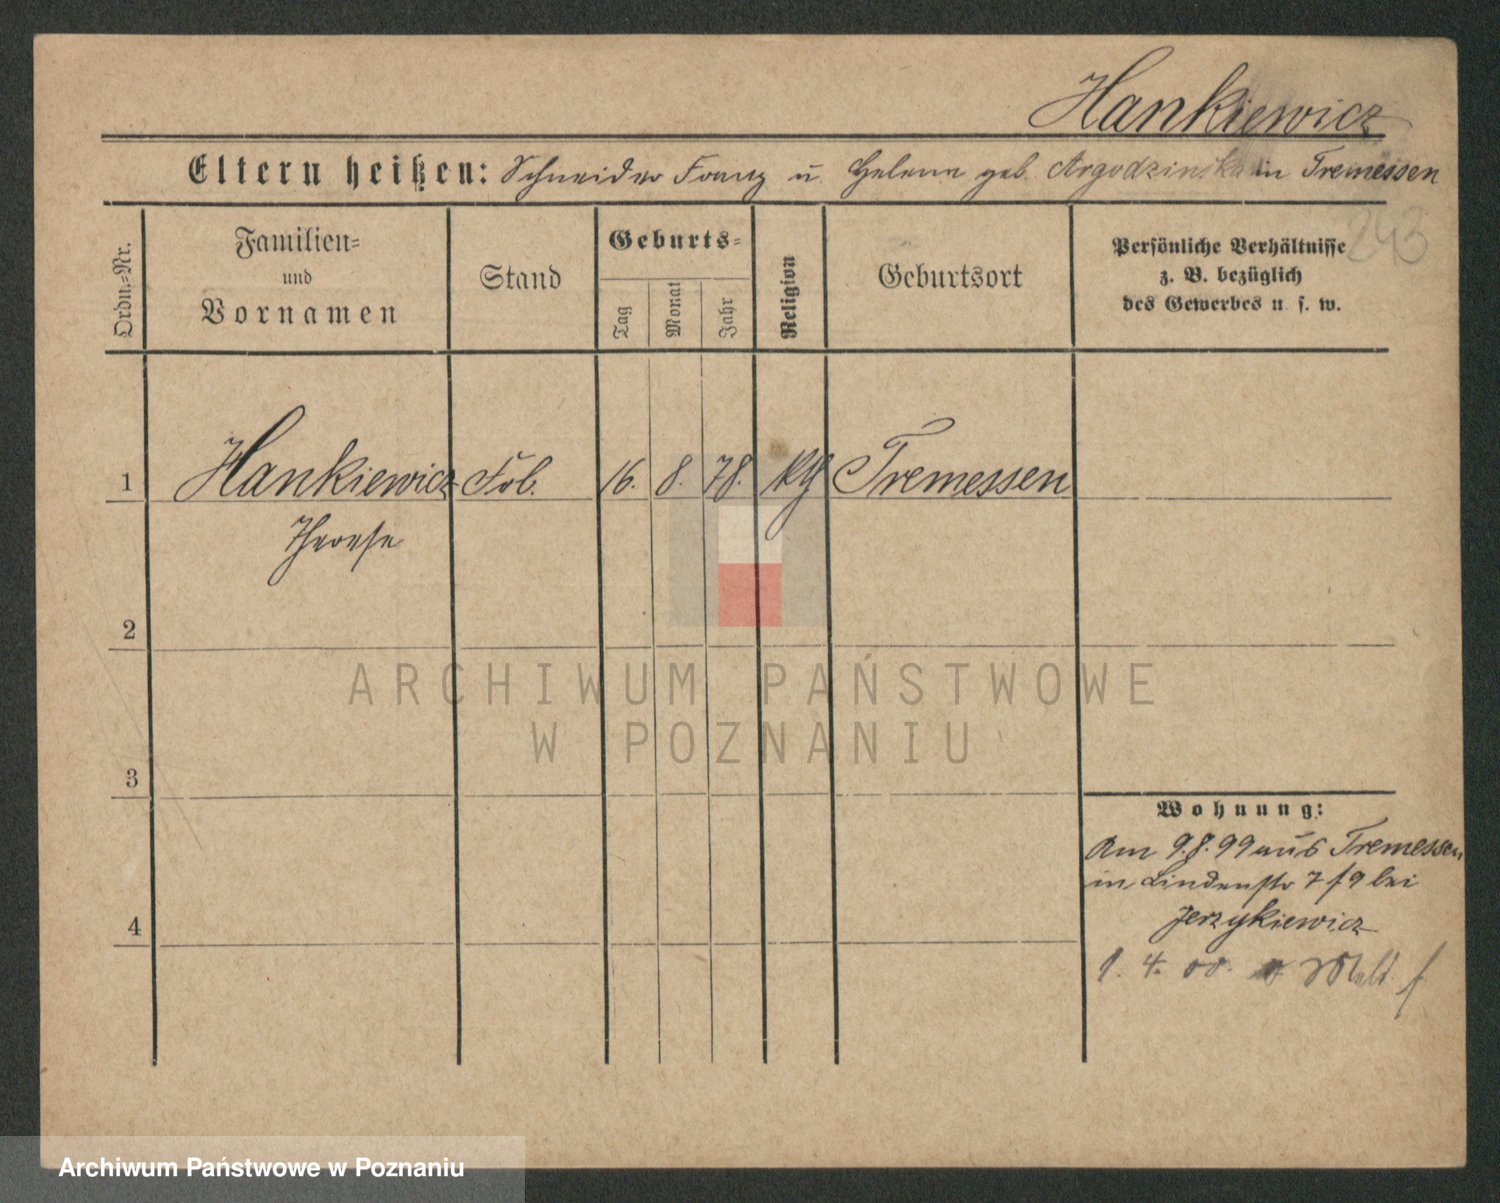 Hankiewicz
Eltern heißen: Schneider Franz u. Helena geb. Argodzinska in Tremessen
243
Ordn.-Nr.
Familien-
und
Vornamen
Stand
Geburts-
Tag
Monat
Jahr
Religion
Geburtsort
Persönliche Verhältnisse
z. B. bezüglich
des Gewerbes u. s. w.
1 Hankiewicz 16. 8. 78. Tremessen
Therese
2
ARCHIWUM PAŃSTWOWE
W POZNANIU
3
Wohnung:
Am 9.8.99 aus Tremessen
in Lindenstr 7 f 9 bei
Jerzykiewicz
4
1. 4. 00.
Archiwum Państwowe w Poznaniu